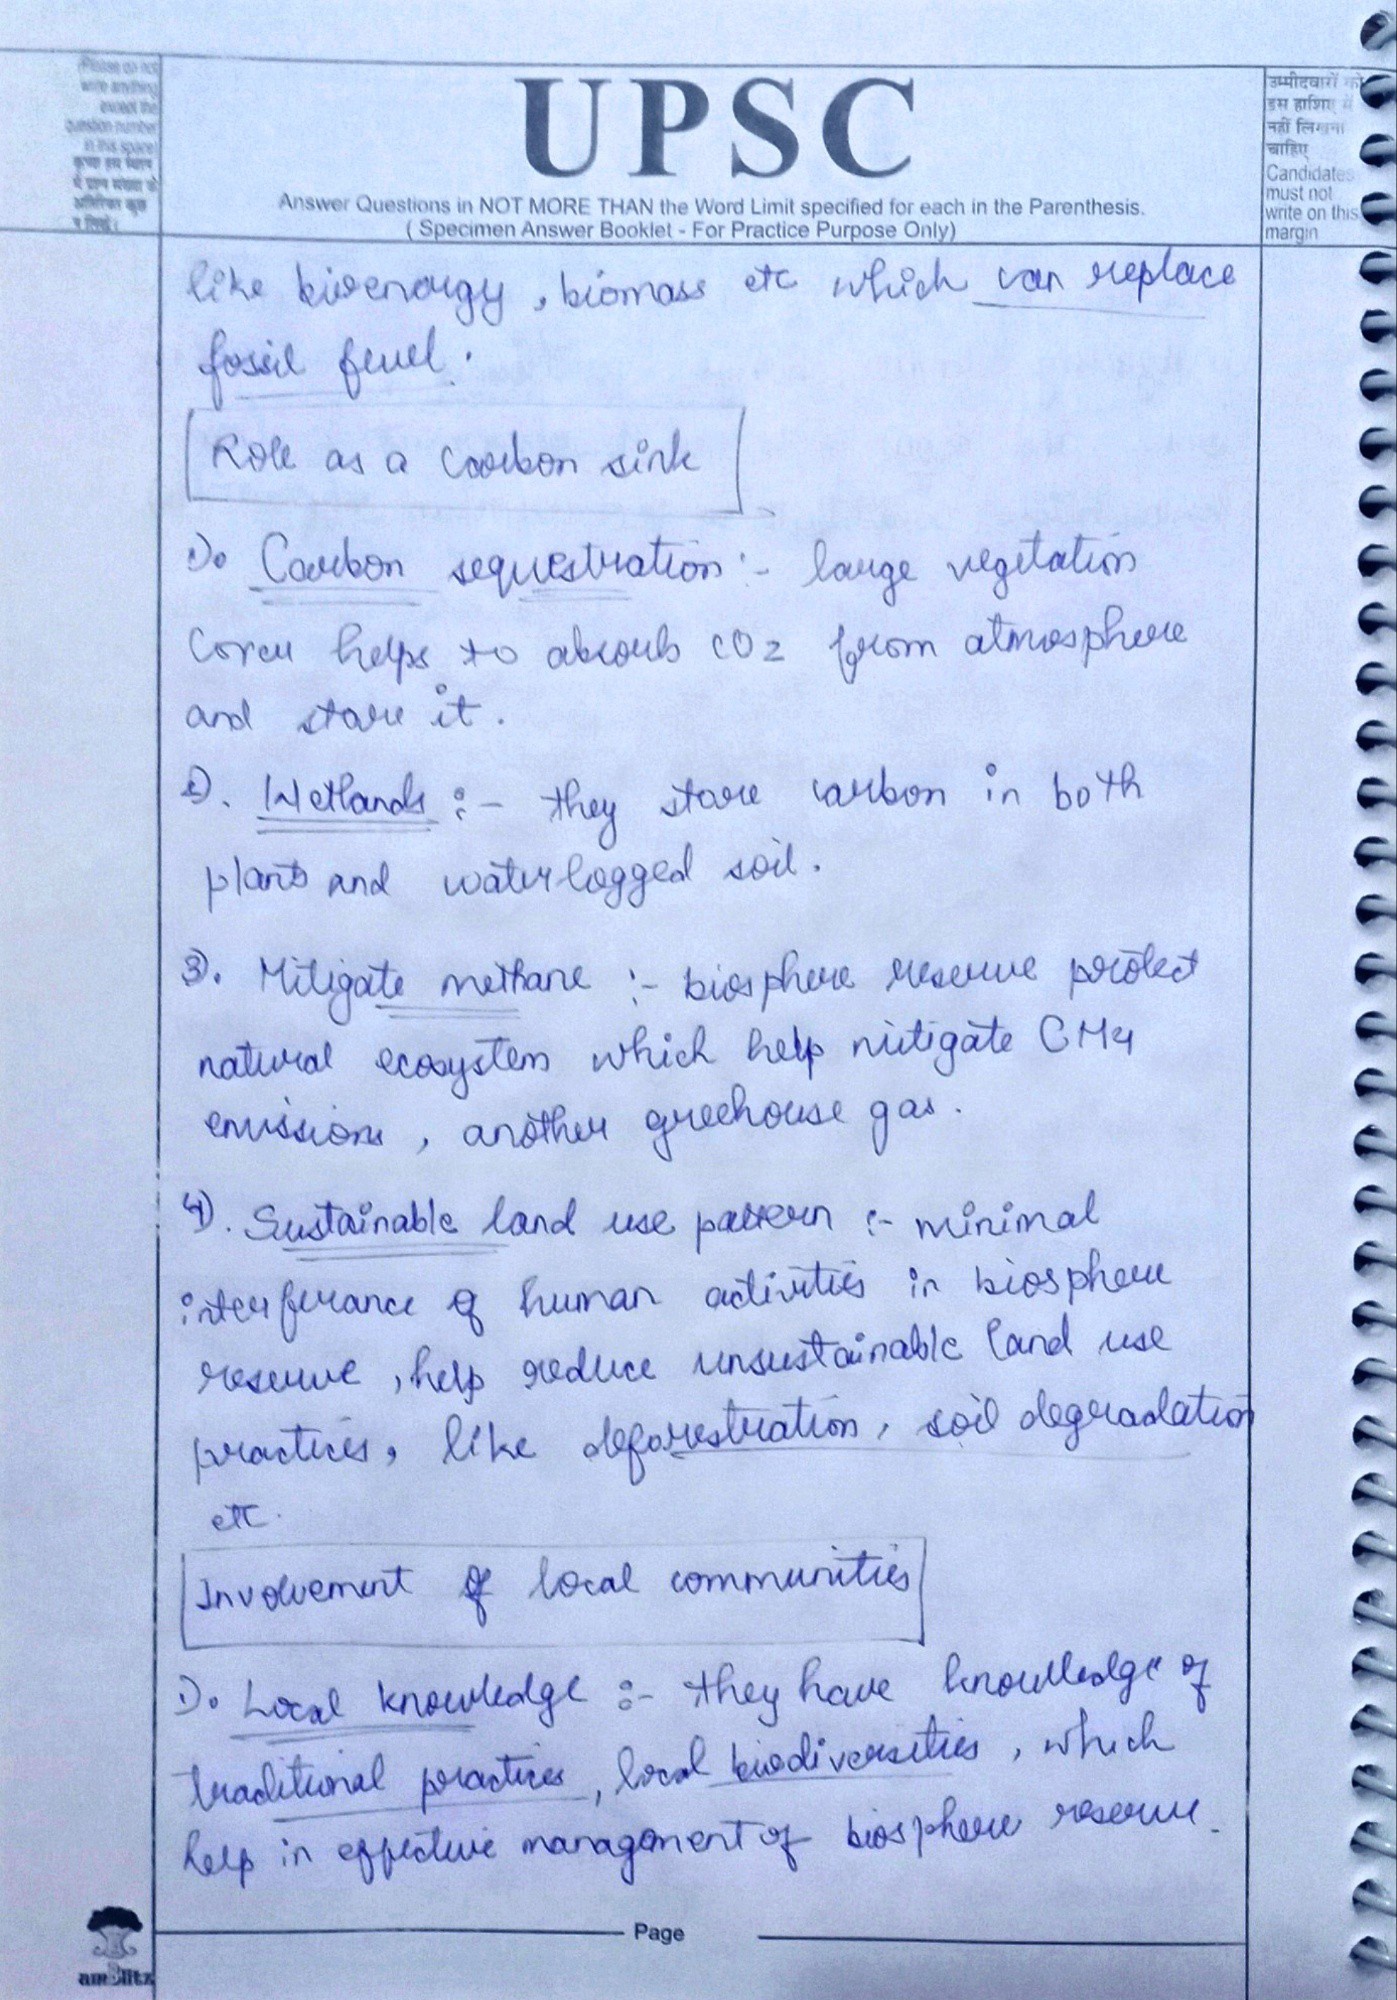 (Please do not
write anything
except the
question number
in this space)
कृपया इस स्थान
में प्रश्न संख्या के
अतिरिक्त कुछ
न लिखें।
UPSC
Answer Questions in NOT MORE THAN the Word Limit specified for each in the Parenthesis.
( Specimen Answer Booklet - For Practice Purpose Only)
उम्मीदवारों को
इस हाशिए में
नहीं लिखना
चाहिए
Candidates
must not
write on this
margin
like bioenergy, biomass etc which can replace
fossil feuel.
Role as a carbon sink
1). Carbon sequestration :- large vegetation
cover helps to absorb CO2 from atmosphere
and store it.
2). Wetlands :- they store carbon in both
plants and waterlogged soil.
3). Mitigate methane :- biosphere reserve protect
natural ecosystem which help mitigate CH4
emissions, another greehouse gas.
4). Sustainable land use pattern :- minimal
interferance of human activities in biosphere
reserve, help reduce unsustainable land use
practices, like deforestration, soil degradation
etc.
Involvement of local communities
1). Local knowledge :- they have knowledge of
traditional practices, local biodiversities, which
help in effective management of biosphere reserve.
Page
amBlitz